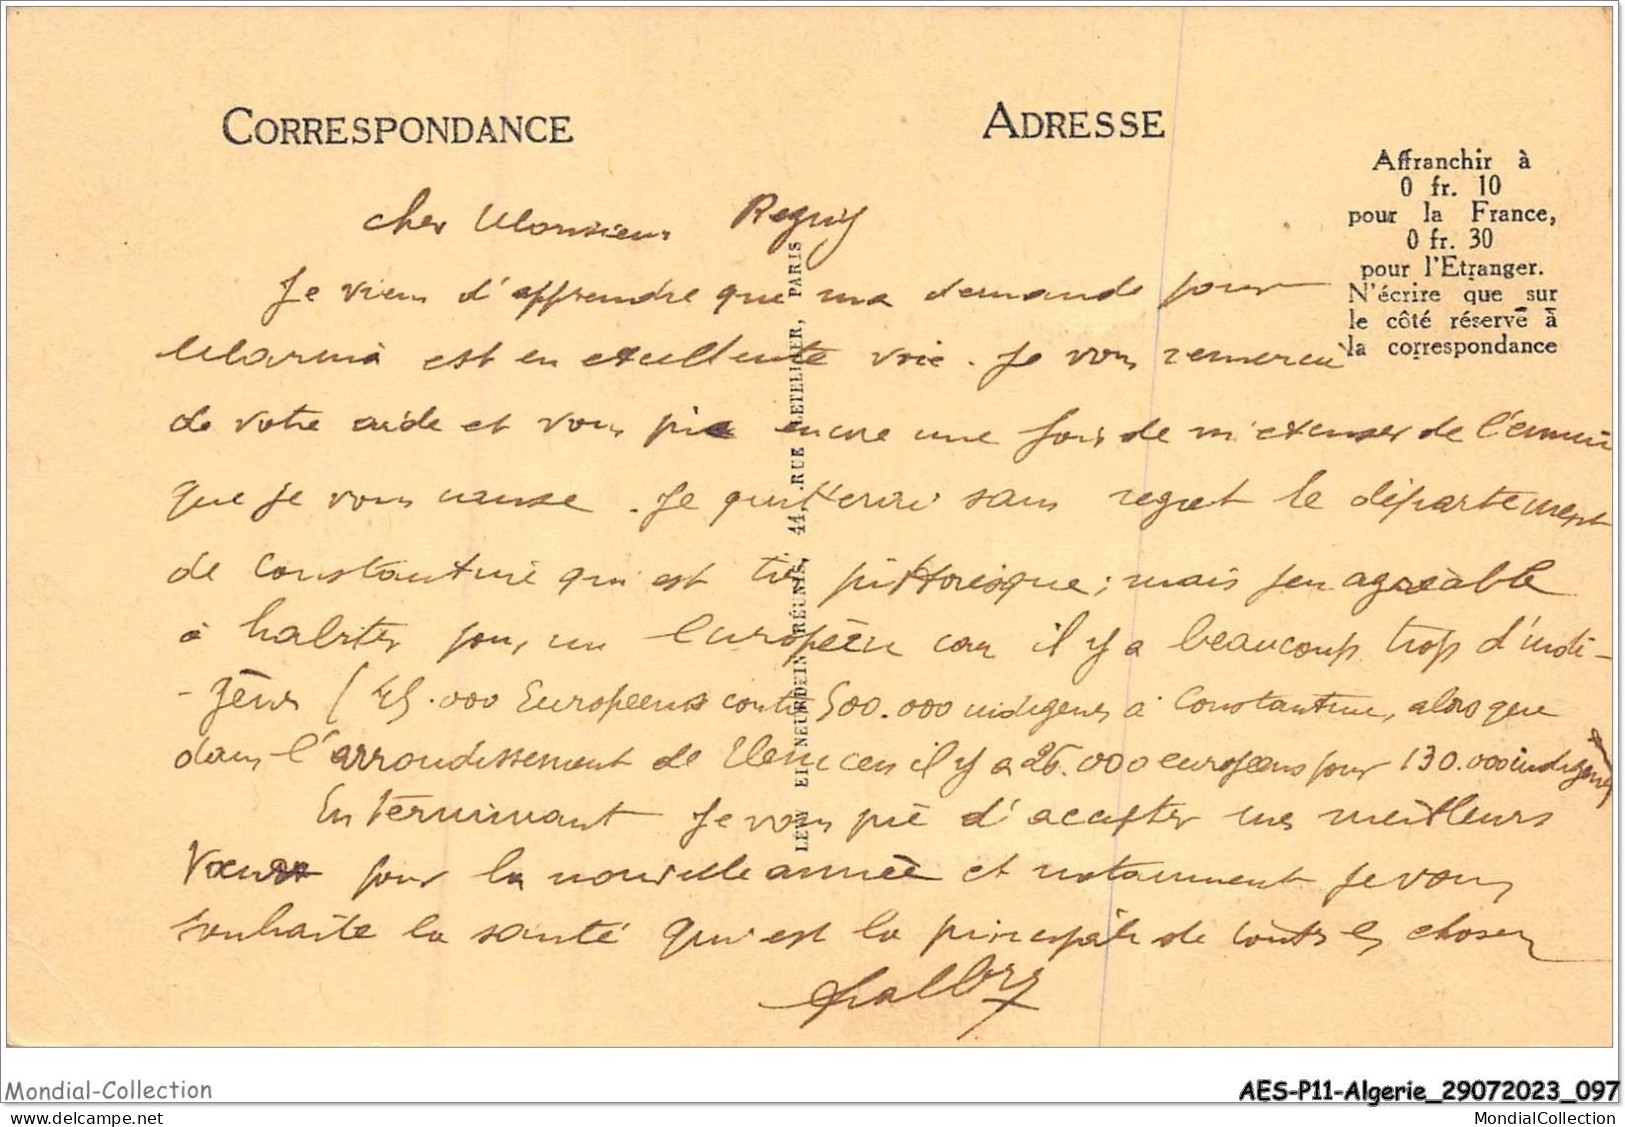 CORRESPONDANCE
ADRESSE
Affranchir à
0 fr. 10
pour la France,
0 fr. 30
pour l'Etranger.
N'écrire que sur
le côté réservé à
la correspondance
LÉVY ET NEURDEIN RÉUNIS, 44, RUE LETELLIER, PARIS
Cher Monsieur
Je viens d'apprendre que ma demande pour
Marnia est en excellente voie. Je vous remercie
de votre aide et vous prie encore une fois de m'excuser de l'ennui
que je vous cause. Je quitterai sans regret le département
de Constantine qui est très pittoresque; mais peu agréable
à habiter pour un Européen car il y a beaucoup trop d'indi-
-gènes (45.000 Européens contre 500.000 indigènes à Constantine, alors que
dans l'arrondissement de Tlemcen il y a 26.000 européens pour 130.000 indigènes
En terminant je vous prie d'accepter mes meilleurs
Vœux pour la nouvelle année et notamment je vous
souhaite la santé qui est la principale de toutes les choses
Mondial-Collection
AES-P11-Algerie_29072023_097
MondialCollection